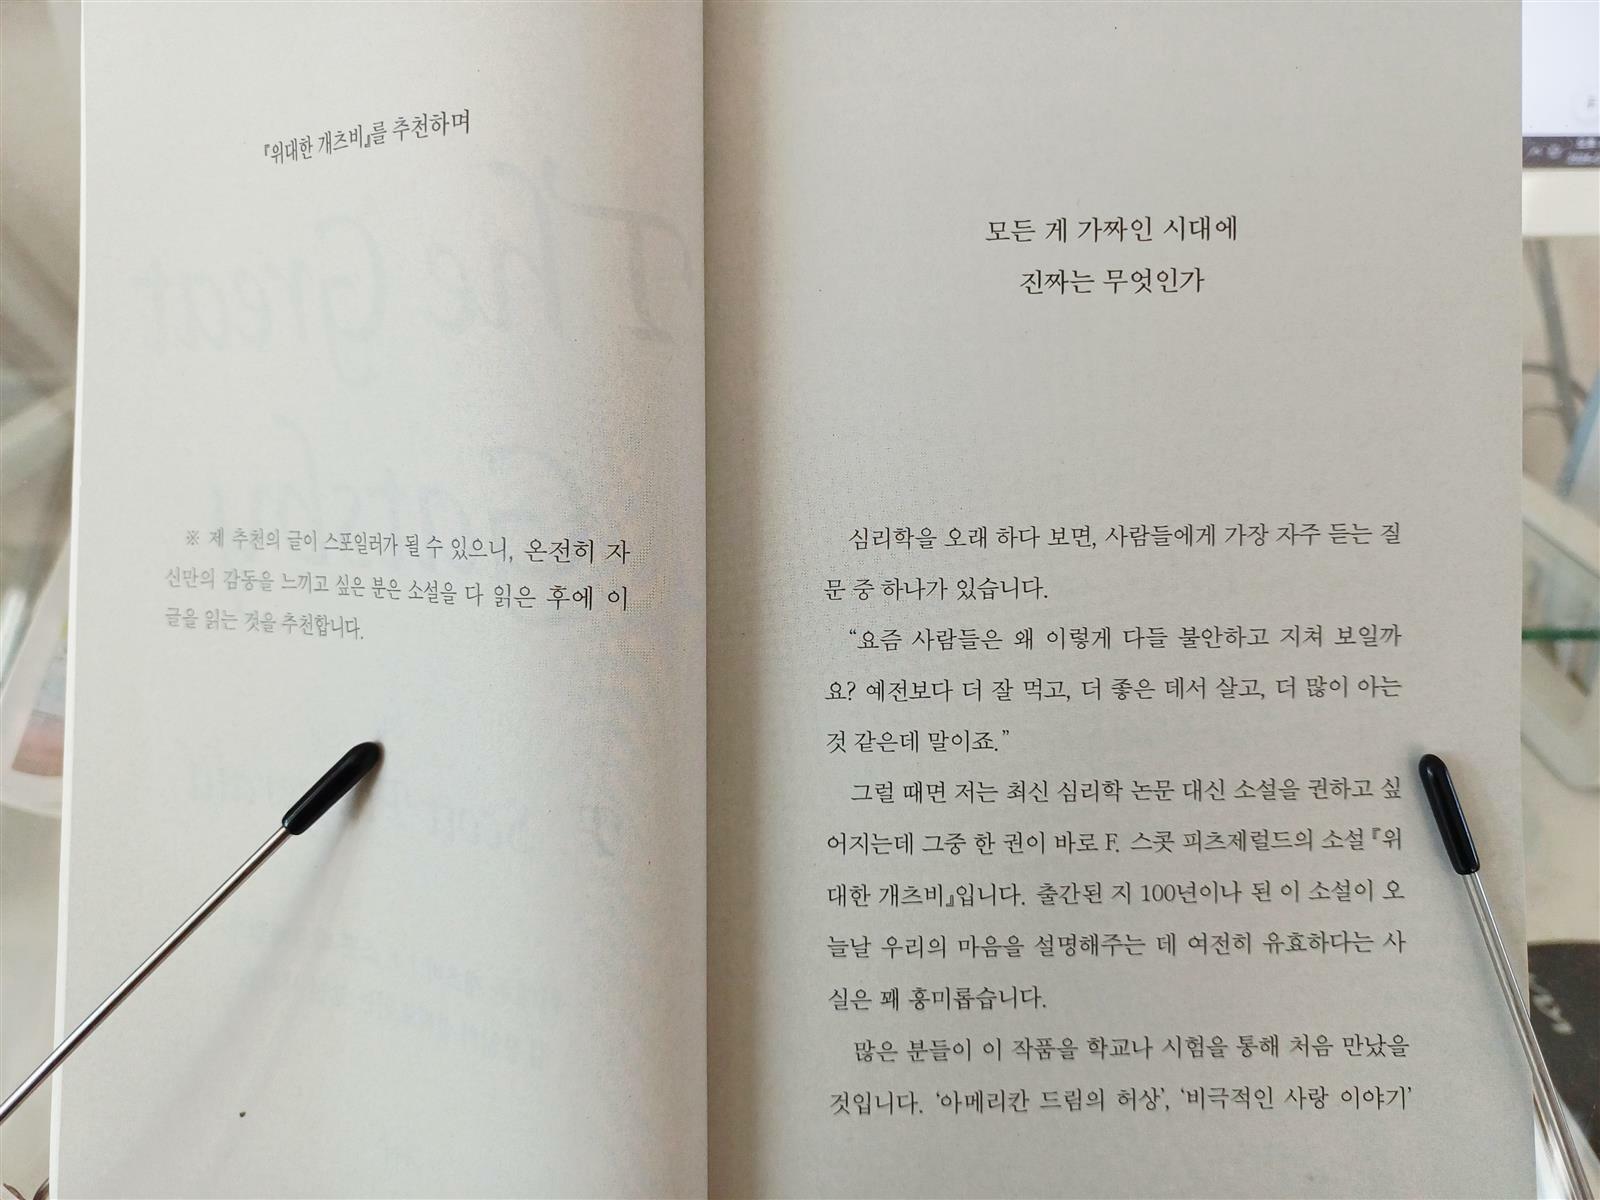 『위대한 개츠비』를 추천하며
※ 제 추천의 글이 스포일러가 될 수 있으니, 온전히 자
신만의 감동을 느끼고 싶은 분은 소설을 다 읽은 후에 이
글을 읽는 것을 추천합니다.
모든 게 가짜인 시대에
진짜는 무엇인가
심리학을 오래 하다 보면, 사람들에게 가장 자주 듣는 질
문 중 하나가 있습니다.
“요즘 사람들은 왜 이렇게 다들 불안하고 지쳐 보일까
요? 예전보다 더 잘 먹고, 더 좋은 데서 살고, 더 많이 아는
것 같은데 말이죠.”
그럴 때면 저는 최신 심리학 논문 대신 소설을 권하고 싶
어지는데 그중 한 권이 바로 F. 스콧 피츠제럴드의 소설 『위
대한 개츠비』입니다. 출간된 지 100년이나 된 이 소설이 오
늘날 우리의 마음을 설명해주는 데 여전히 유효하다는 사
실은 꽤 흥미롭습니다.
많은 분들이 이 작품을 학교나 시험을 통해 처음 만났을
것입니다. ‘아메리칸 드림의 허상’, ‘비극적인 사랑 이야기’